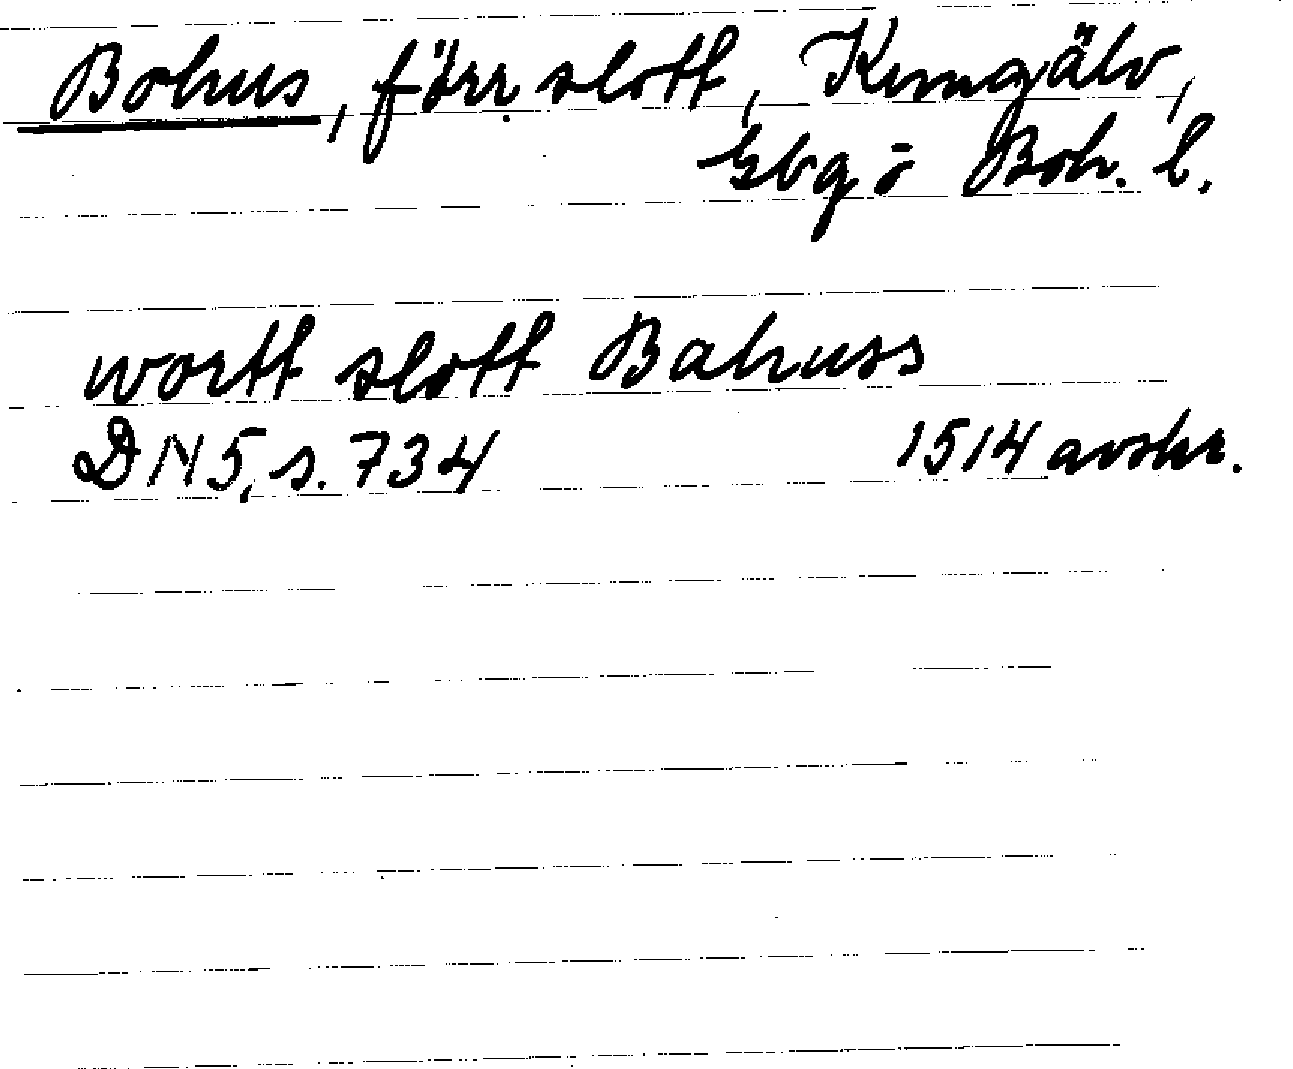 Bohus, förr. slott, Kungälv,
Gbg o Boh. l.
wortt slott Bahuss
DN 5, s. 734 1514 avskr.